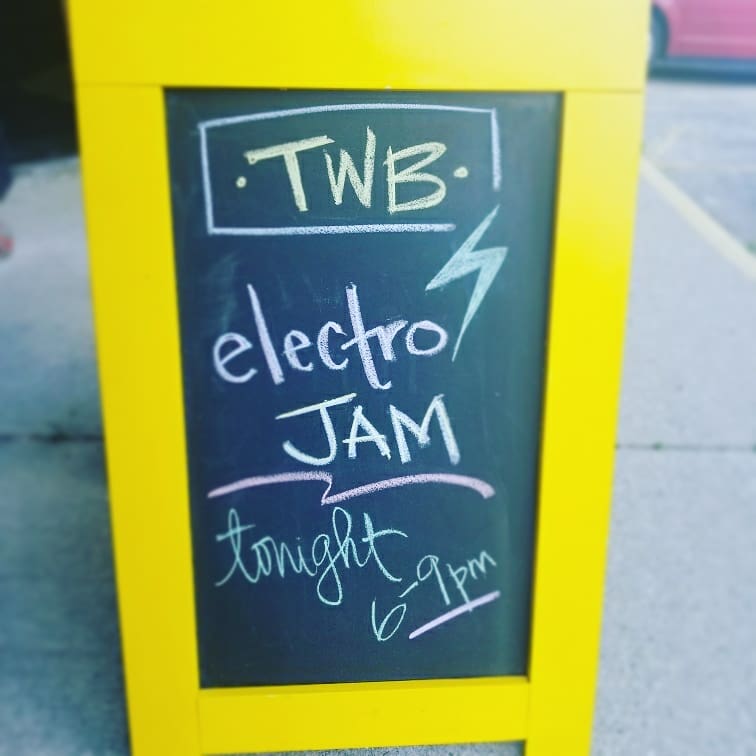 ·TWB·
electro
JAM
tonight
6-9pm